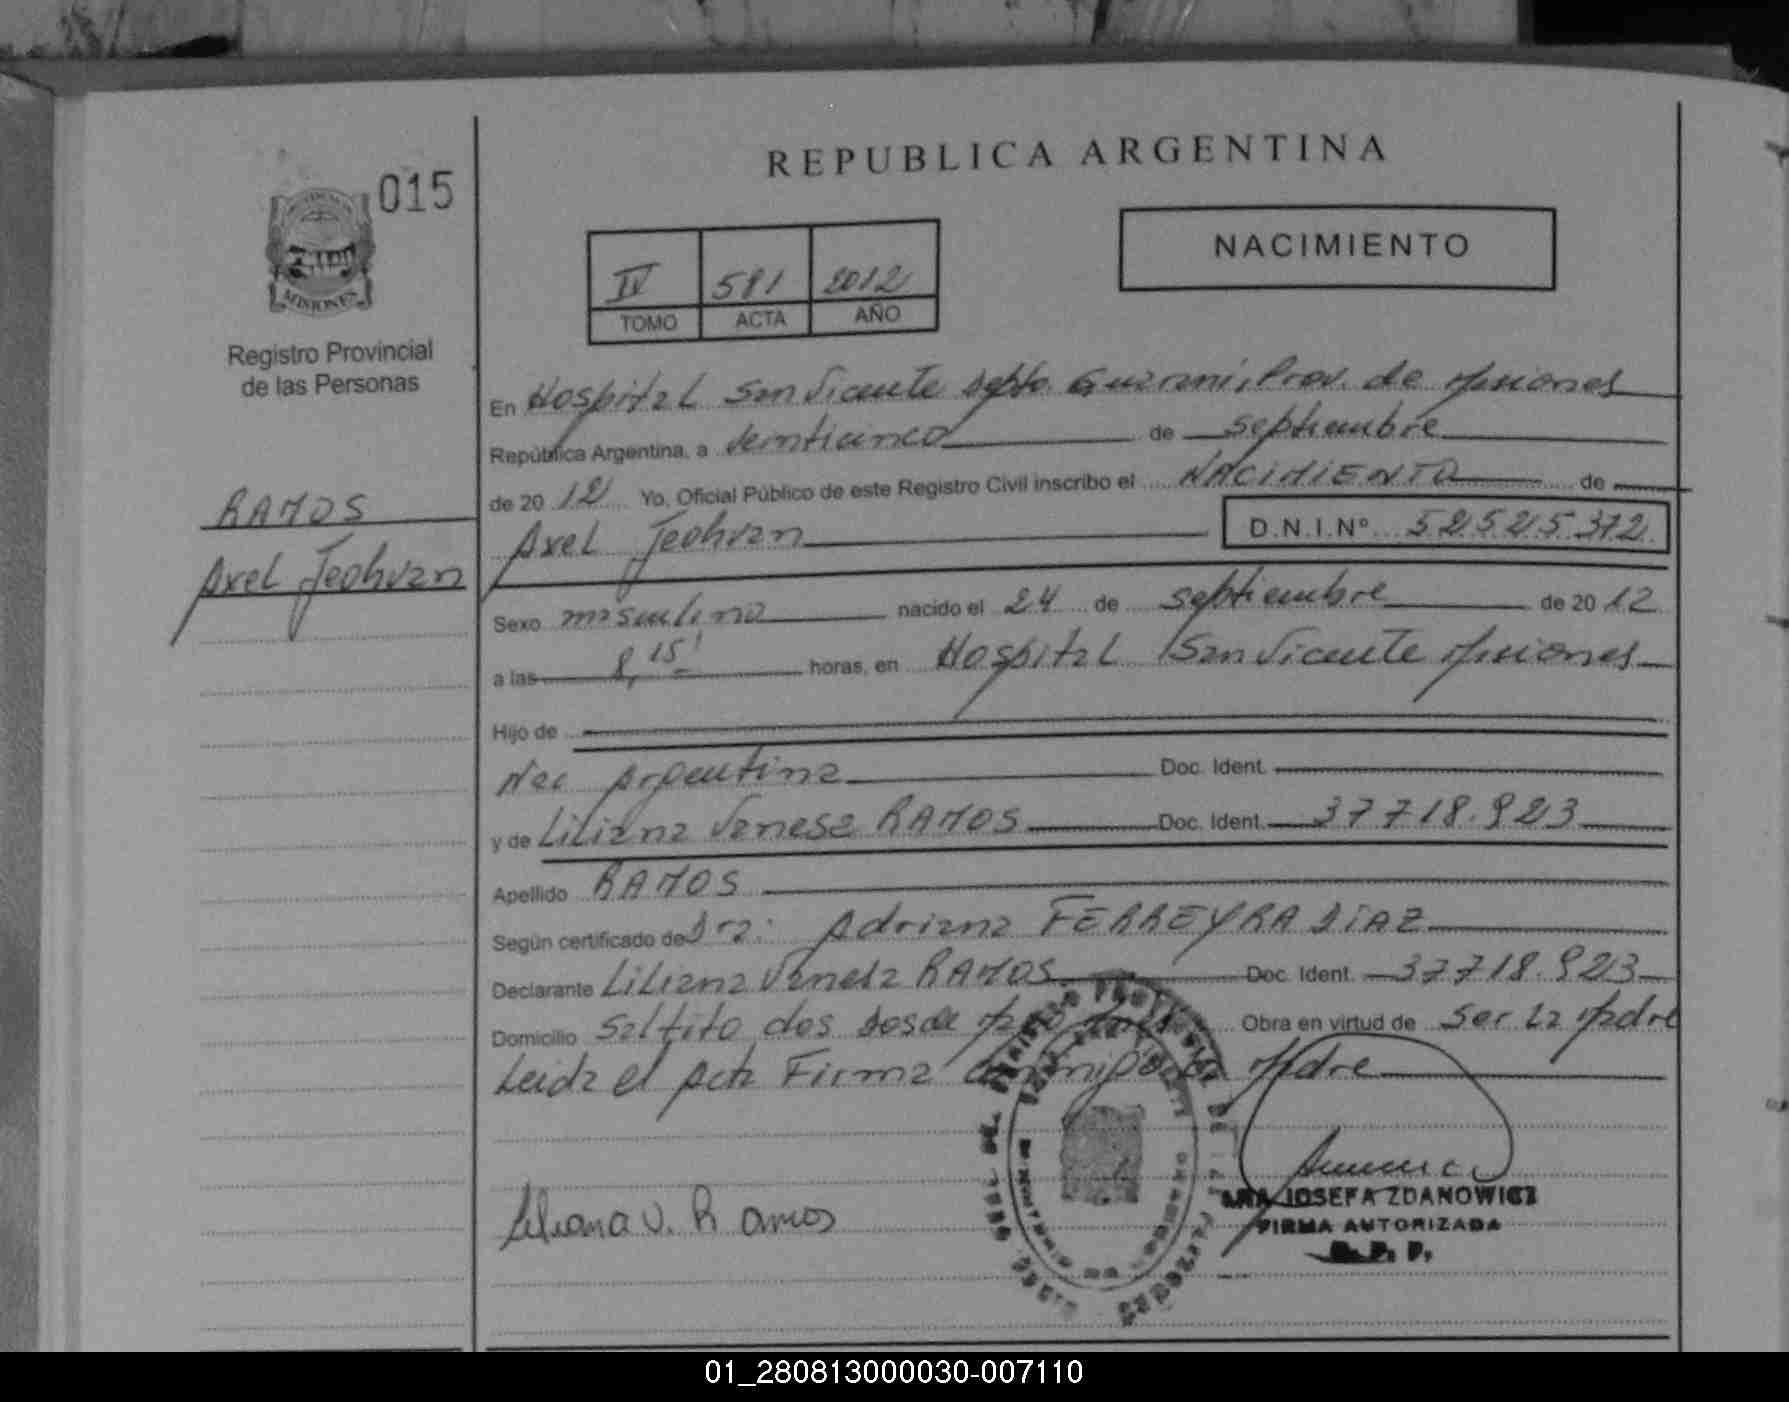 REPUBLICA ARGENTINA
015
NACIMIENTO
IV 581 2012
TOMO ACTA AÑO
MISIONES
Registro Provincial
de las Personas
RAMOS
Axel Jeohvan
En Hospital San Vicente Dpto. Guarani, Prov. de Misiones
República Argentina, a veinticinco de septiembre
de 20 12 Yo, Oficial Público de este Registro Civil inscribo el NACIMIENTO de
Axel Jeohvan D.N.I.Nº 52525372
Sexo masculino nacido el 24 de septiembre de 20 12
a las 8,15' horas, en Hospital San Vicente Misiones
Hijo de
Nac Argentina Doc. Ident.
y de Liliana Vanesa RAMOS Doc. Ident. 37718.923
Apellido RAMOS
Según certificado de Dra: Adriana FERREYRA DIAZ
Declarante Liliana Vanesa RAMOS Doc. Ident. 37718.923
Domicilio Saltito dos Obra en virtud de Ser La Madre
Leida el Acta Firma Madre
Liliana V. Ramos
JOSEFA ZDANOWICZ
FIRMA AUTORIZADA
01_280813000030-007110